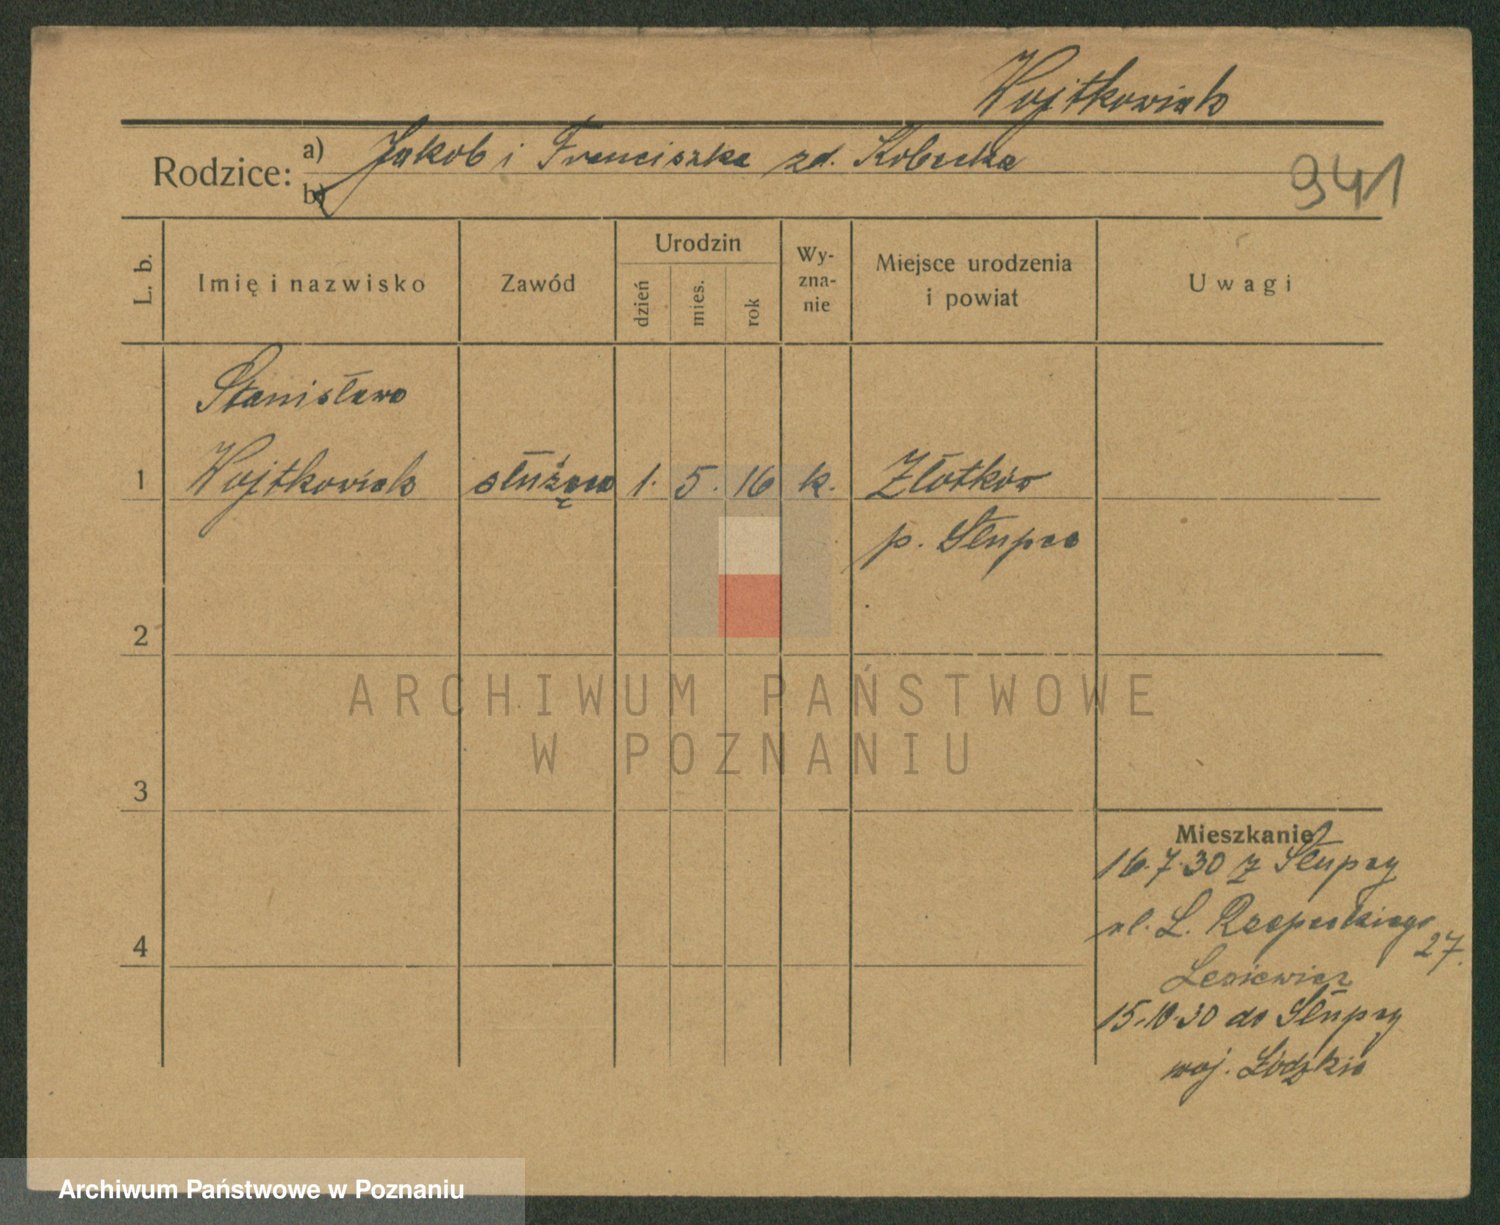 Wojtkowiak
Rodzice:
a) Jakob i Franciszka zd. Kobecka
b)
941
L. b.
Imię i nazwisko
Zawód
Urodzin
dzień
mies.
rok
Wy-
zna-
nie
Miejsce urodzenia
i powiat
Uwagi
Stanisława
1 Wojtkowiak służąca 1. 5. 16 k. Złotków
p. Słupca
2
3
4
ARCHIWUM PAŃSTWOWE
W POZNANIU
Mieszkanie
16.7.30 z Słupcy
ul. L. Rzepeckiego
27.
Lesiewicz
15.10.30 do Słupcy
woj. Łódzkie
Archiwum Państwowe w Poznaniu